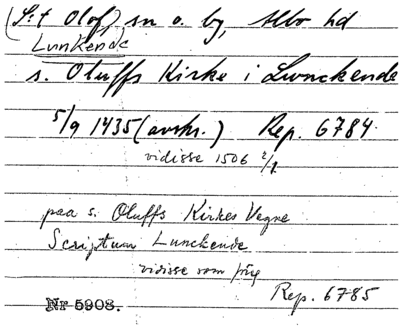 (S:t Olof,) sn o. by, Albo hd
Lunkende
s. Oluffs Kirke i Lunckende
5/9 1435 (avskr.) Rep. 6784.
vidisse 1506 2/1.
paa s. Oluffs Kirkes Vegne
Scriptum Lunckende
vidisse som föreg
Rep. 6785
Nr 5908.